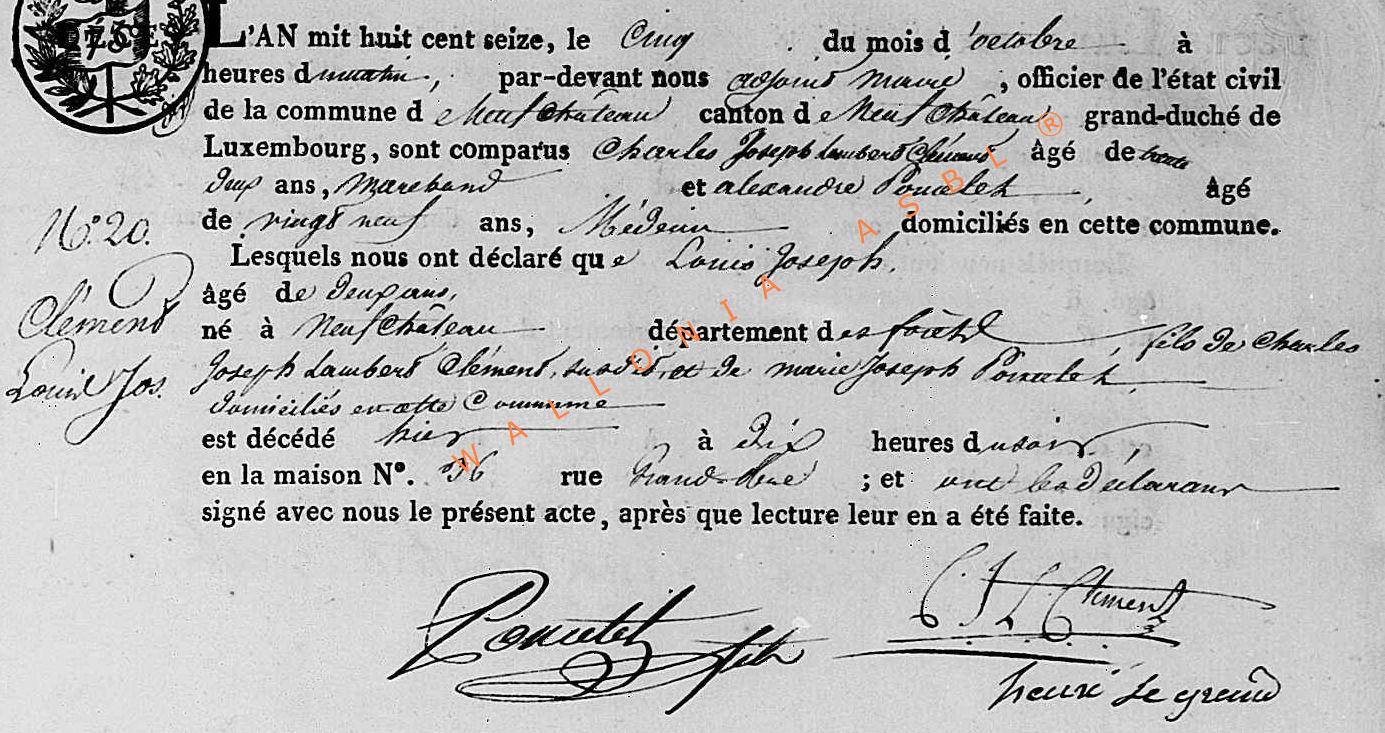 L'AN mit huit cent seize, le Cinq du mois d'octobre à
heures du matin, par-devant nous adjoint maire, officier de l'état civil
de la commune de Neufchâteau canton de Neufchâteau grand-duché de
Luxembourg, sont comparus Charles Joseph Lambert Clément âgé de trente
deux ans, Marchand et alexandre Poncelet, âgé
de vingt neuf ans, Médecin domiciliés en cette commune.
Lesquels nous ont déclaré que Louis Joseph,
âgé de deux ans,
né à Neufchâteau département des forêts, fils de Charles
Joseph Lambert Clément, susdit, et de marie Joseph Poncelet,
domiciliés en cette Commune
est décédé hier à dix heures du soir,
en la maison Nº. 36 rue Grand-Rue ; et ont les déclarans
signé avec nous le présent acte, après que lecture leur en a été faite.
Nº. 20.
Clément
Louis Jos.
Poncelet
C. J. L. Clément
WALLONIA ASBL ®